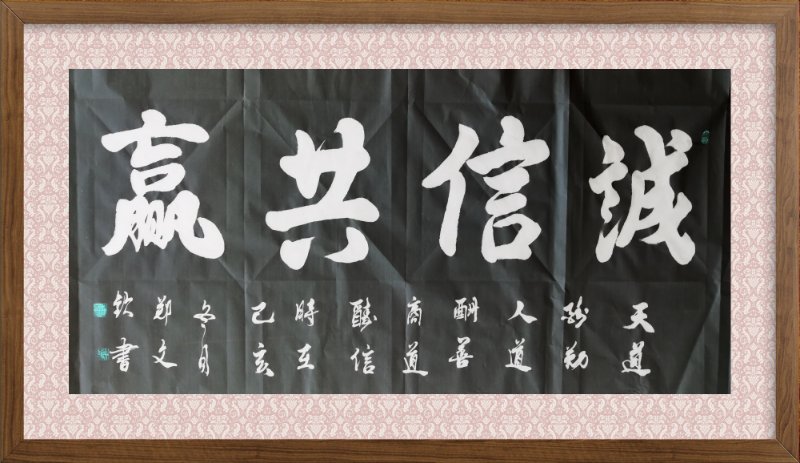 誠信共赢
天道
酬勤
人道
酬善
商道
酬信
時在
己亥
冬月
郑文
钦書